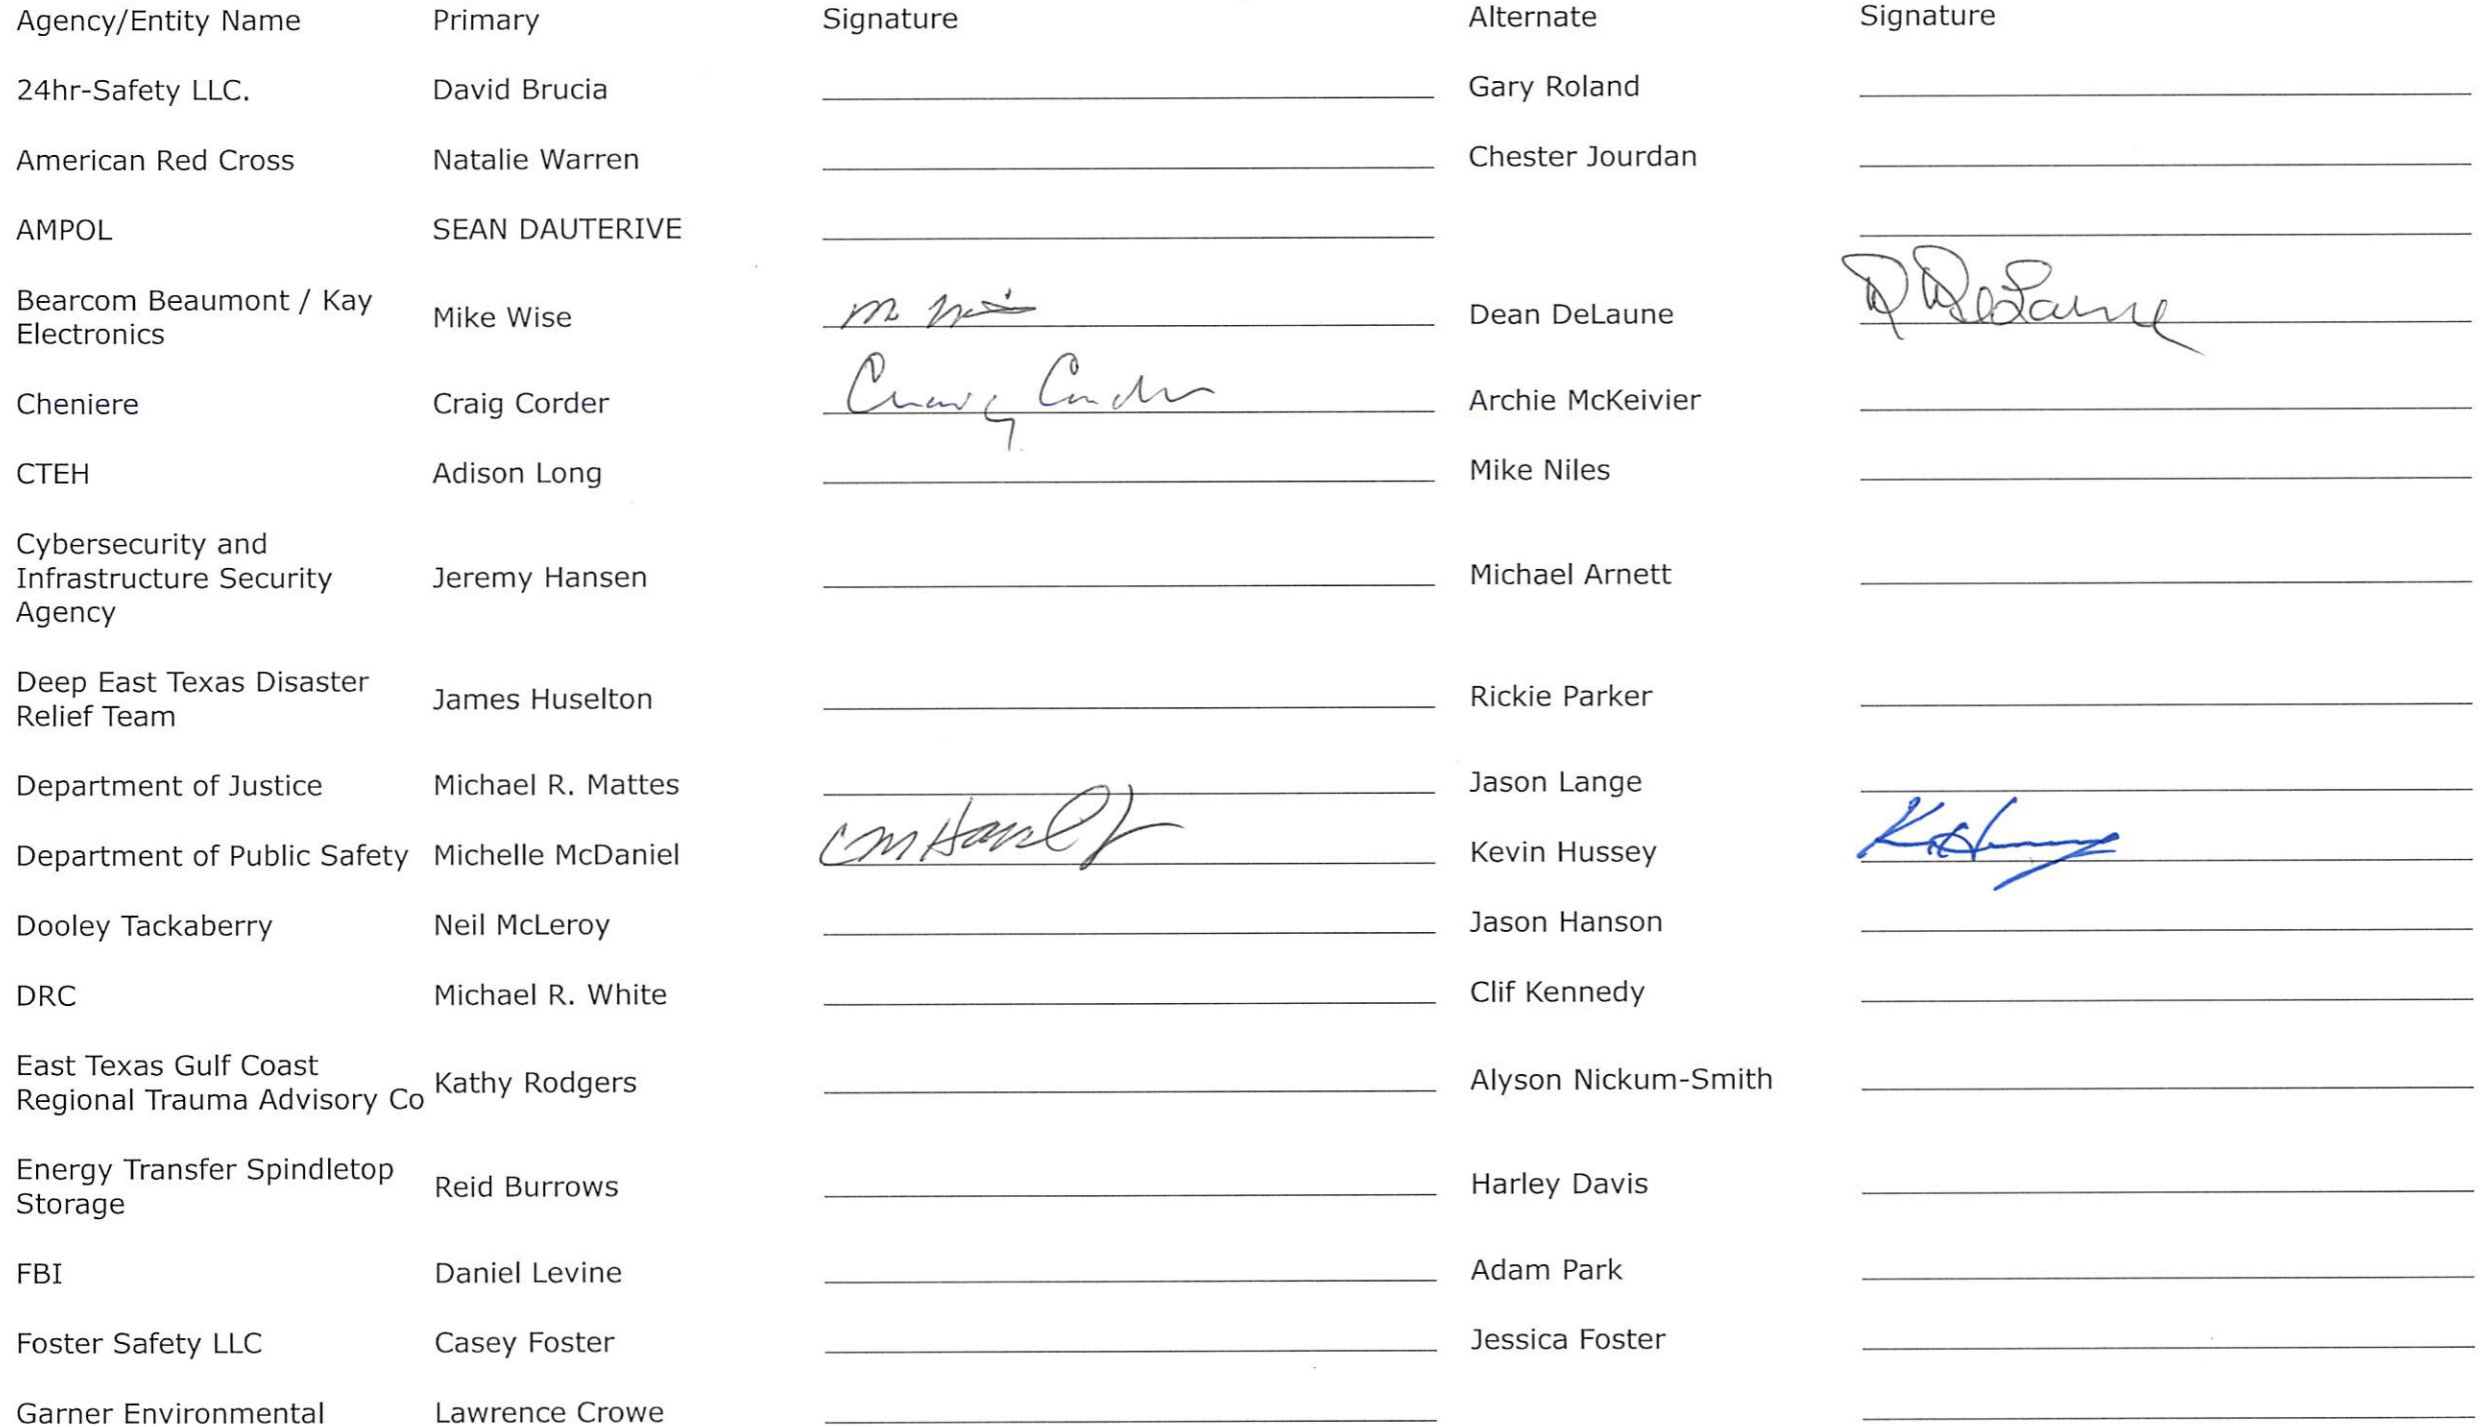 Agency/Entity Name Primary Signature Alternate Signature
24hr-Safety LLC. David Brucia Gary Roland
American Red Cross Natalie Warren Chester Jourdan
AMPOL SEAN DAUTERIVE
Bearcom Beaumont / Kay
Electronics Mike Wise Dean DeLaune D DeLaune
Cheniere Craig Corder Craig Corder Archie McKeivier
CTEH Adison Long Mike Niles
Cybersecurity and
Infrastructure Security
Agency Jeremy Hansen Michael Arnett
Deep East Texas Disaster
Relief Team James Huselton Rickie Parker
Department of Justice Michael R. Mattes Jason Lange
Department of Public Safety Michelle McDaniel Kevin Hussey
Dooley Tackaberry Neil McLeroy Jason Hanson
DRC Michael R. White Clif Kennedy
East Texas Gulf Coast
Regional Trauma Advisory Co Kathy Rodgers Alyson Nickum-Smith
Energy Transfer Spindletop
Storage Reid Burrows Harley Davis
FBI Daniel Levine Adam Park
Foster Safety LLC Casey Foster Jessica Foster
Garner Environmental Lawrence Crowe